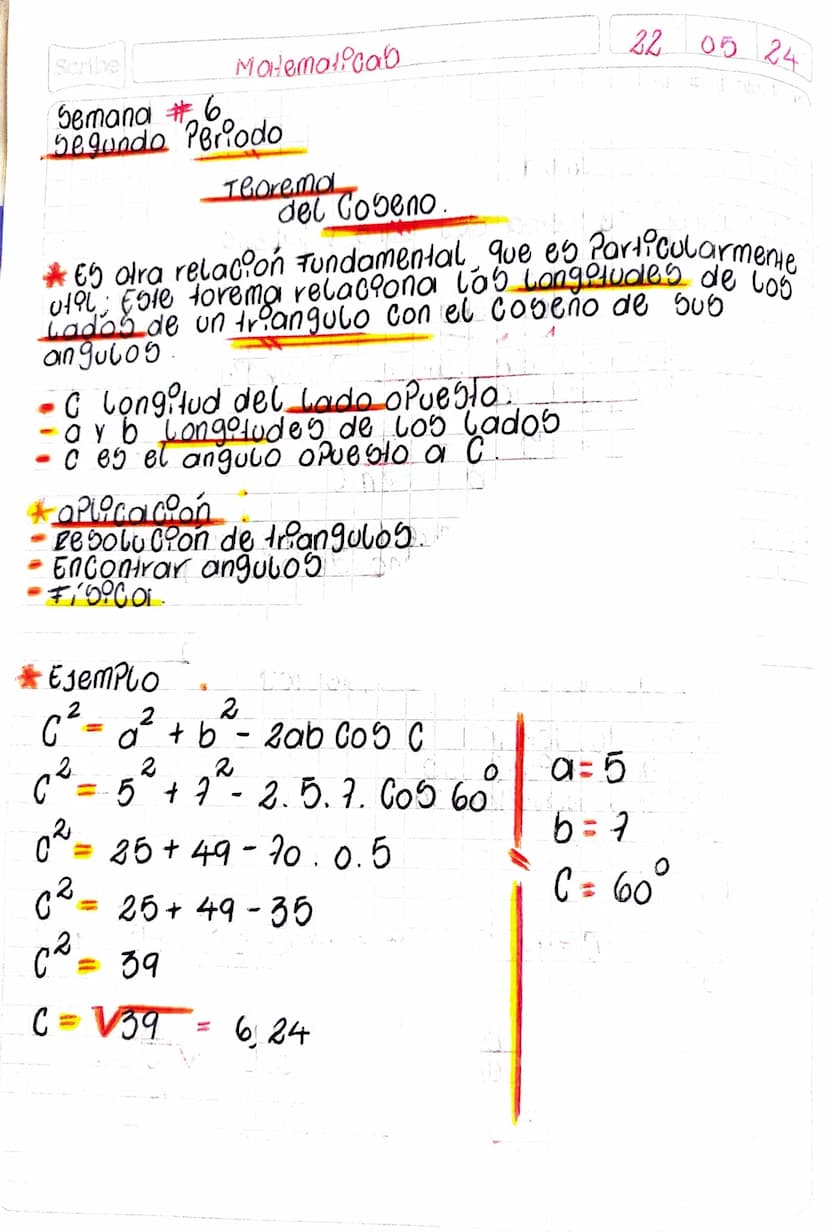 Scribe
Matematicas
22 05 24
Semana # 6
Segundo Periodo
Teorema
del Coseno.
* Es otra relación Fundamental que es Particularmente
util; Este torema relaciona las longitudes de los
lados de un triangulo con el coseno de sus
angulos.
- C longitud del lado opuesto.
- a y b longitudes de los lados
- C es el angulo opuesto a C.
* aplicación :
- Resolución de triangulos.
- Encontrar angulos
- Físicoi.
* Ejemplo .
C² = a² + b² - 2ab Cos C
C² = 5² + 7² - 2. 5. 7. Cos 60°
C² = 25 + 49 - 70 . 0.5
C² = 25 + 49 - 35
C² = 39
C = √39 = 6,24
a = 5
b = 7
C = 60°